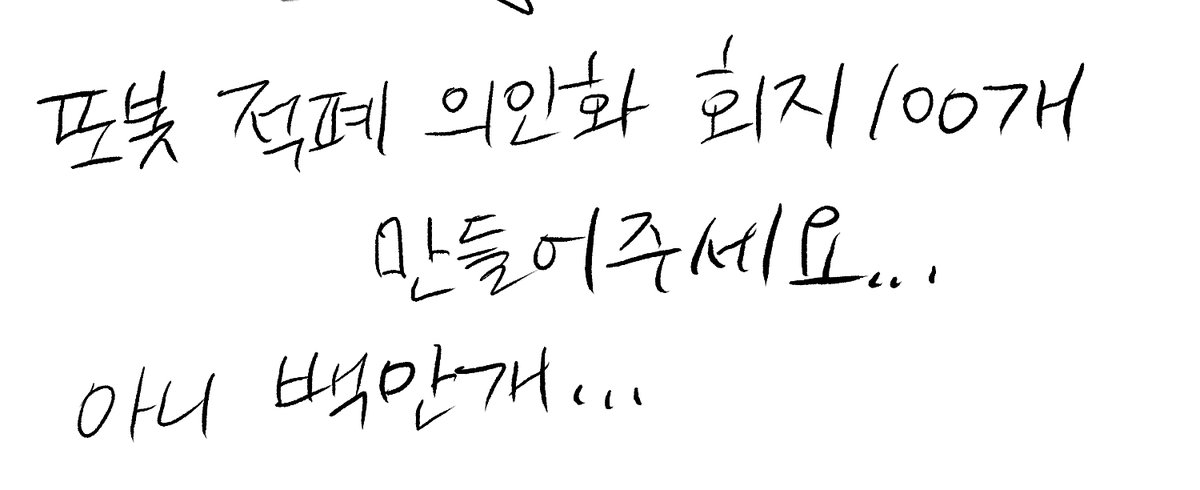 또봇 적폐 의인화 회지 100개
만들어주세요...
아니 백만개...